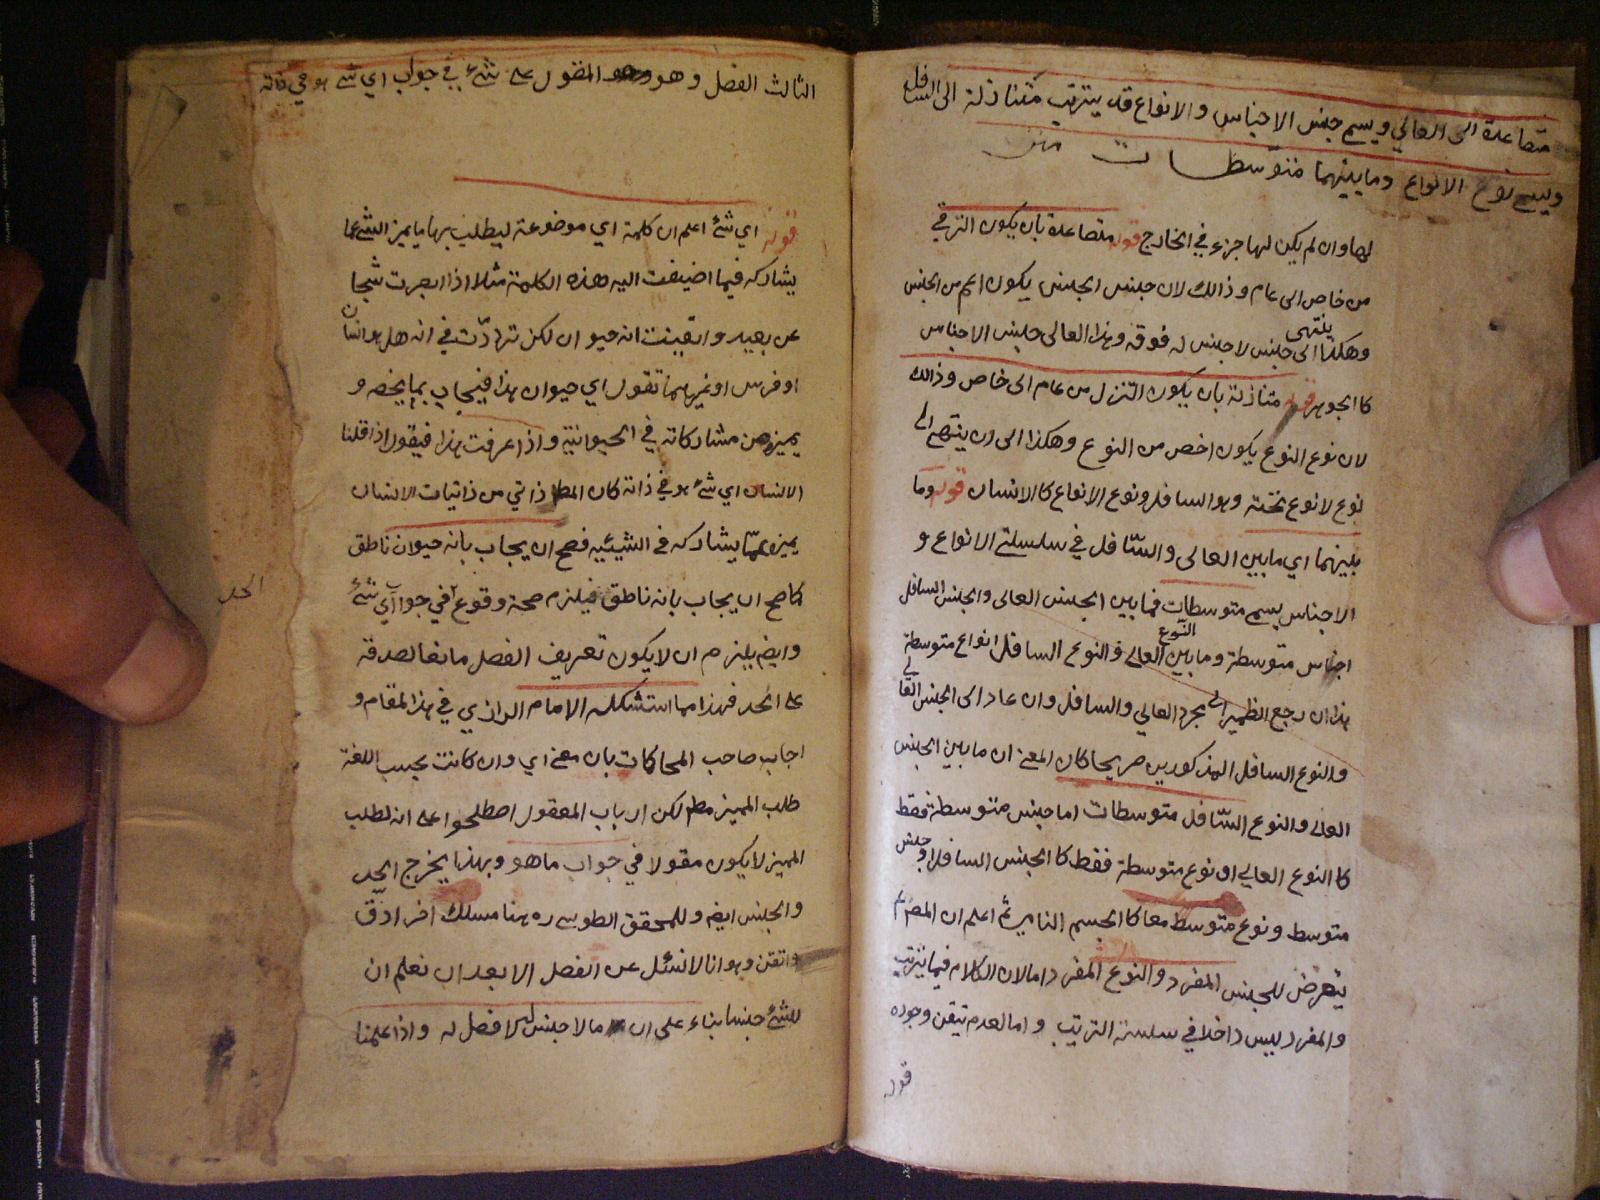 متصاعدة الى العالي ويسمى جنس الاجناس والانواع قد يترتب متنازلة الى السافل
ويسمى نوع الانواع وما بينهما متوسطات متن
لها وان لم يكن لها جزء في الخارج قوله متصاعدة بان يكون الترقي
من خاص الى عام وذالك لان جنس الجنس يكون اعم من الجنس
وهكذا الى ينتهي جنس لا جنس له فوقه وهذا العالي جنس الاجناس
كالجوهر قوله متنازلة بان يكون التنزل من عام الى خاص وذالك
لان نوع النوع يكون اخص من النوع وهكذا الى ان ينتهي الى
نوع لا نوع تحته وهو السافل ونوع الانواع كالانسان قوله وما
بينهما اي ما بين العالي والسّافل في سلسلتي الانواع و
الاجناس يسمى متوسطات فما بين الجنس العالي والجنس السافل
اجناس متوسطة وما بين النّوع العالي والنوع السافل انواع متوسطة
هذا ان رجع الظمير الى مجرد العالي والسافل وان عاد الى الجنس العالي
والنوع السافل المذكورين صريحا كان المعنى ان ما بين الجنس
العالي والنوع السّافل متوسطات اما جنس متوسطة فقط
كا النوع العالي او نوع متوسطة فقط كا الجنس السافل او جنس
متوسط ونوع متوسط معا كا الجسم النامي ثم اعلم ان المصـ لم
يتعرض للجنس المفرد والنوع المفرد اما لان الكلام فيما يترتب
والمفرد ليس داخلا في سلسلة الترتيب واما لعدم تيقن وجوده
قوله
الثالث الفصل وهو المقول على شئ في جواب اي شئ هو في ذاته
قوله اي شئ اعلم ان كلمة اي موضوعة ليطلب بها ما يميز الشئ عما
يشاركه فيما اضيفت اليه هذه الكلمة مثلا اذا ابصرت شبحا
عن بعيد وايقنت انه حيوان لكن تردّدت في انه هل هو انسان
او فرس او غيرهما تقول اي حيوان هذا فيجاب بما يخصه و
يميزه من مشاركاته في الحيوانية واذا عرفت هذا فيقول اذا قلنا
الانسان اي شئ هو في ذاته كان المط ذاتي من ذاتيات الانسان
يميزه عمّا يشاركه في الشيئية فصح ان يجاب بانه حيوان ناطق
كما صح ان يجاب بانه ناطق فيلزم صحة وقوع في جواب اي شئ
الحد
وايضـ يلزم ان لا يكون تعريف الفصل مانعا لصدقه
على الحد فهذا مما استشكله الامام الرازي في هذا المقام و
اجاب صاحب المحاكات بان معنى اي وان كانت بحسب اللغة
طلب المميز مط لكن ارباب المعقول اصطلحوا على انه لطلب
المميز لا يكون مقولا في جواب ما هو وبهذا يخرج الحد
والجنس ايضـ وللمحقق الطوسي ره هنا مسلك اخر ادق
واتقن وهو انا لا نسئل عن الفصل الا بعد ان نعلم ان
للشئ جنسا بناء على ان ما لا جنس له لا فصل له واذا علمنا